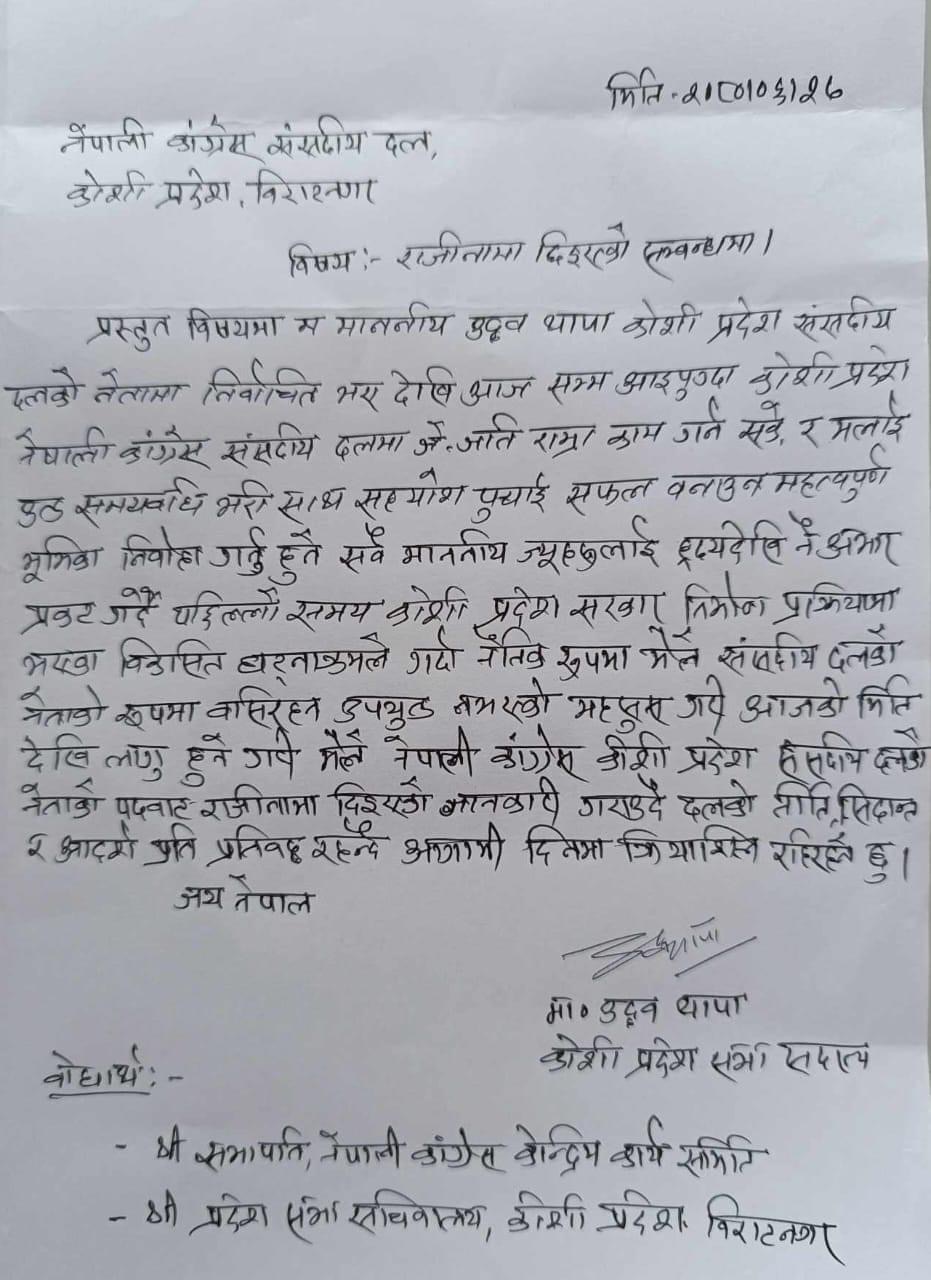 मिति - २०८०।०६।२७
नेपाली कांग्रेस संसदीय दल,
कोशी प्रदेश, विराटनगर
विषय:- राजीनामा दिइएको सम्बन्धमा।
प्रस्तुत विषयमा म माननीय उद्धव थापा कोशी प्रदेश संसदीय
दलको नेतामा निर्वाचित भए देखि आज सम्म आइपुग्दा कोशी प्रदेश
नेपाली कांग्रेस संसदीय दलमा जे-जति राम्रा काम गर्न सकें, र मलाई
समयवधि भरी साथ सहयोग पुर्‍याई सफल बनाउन महत्वपुर्ण
भूमिका निर्वाह गर्नु हुने सबै माननीय ज्यूहरुलाई ह्रदयदेखि नै आभार
प्रकट गर्दै पछिल्लो समय कोशी प्रदेश सरकार निर्माण प्रक्रियामा
भएका विकसित घटनाक्रमले गर्दा नैतिक रूपमा मैले संसदीय दलको
नेताको रूपमा बसिरहन उपयुक्त नभएको महसुस गरी आजको मिति
देखि लागु हुने गरी मैले नेपाली कांग्रेस कोशी प्रदेश संसदीय दलको
नेताको पदबाट राजीनामा दिइएको जानकारी गराउदै दलको नीति, सिद्धान्त
र आदर्श प्रति प्रतिवद्ध रहन्दै आगामी दिनमा क्रियाशिल रहिरहने छु।
जय नेपाल
मा० उद्धव थापा
कोशी प्रदेश सभा सदस्य
वोधार्थ:-
- श्री सभापति, नेपाली कांग्रेस केन्द्रिय कार्य समिति
- श्री प्रदेश सभा सचिवालय, कोशी प्रदेश विराटनगर